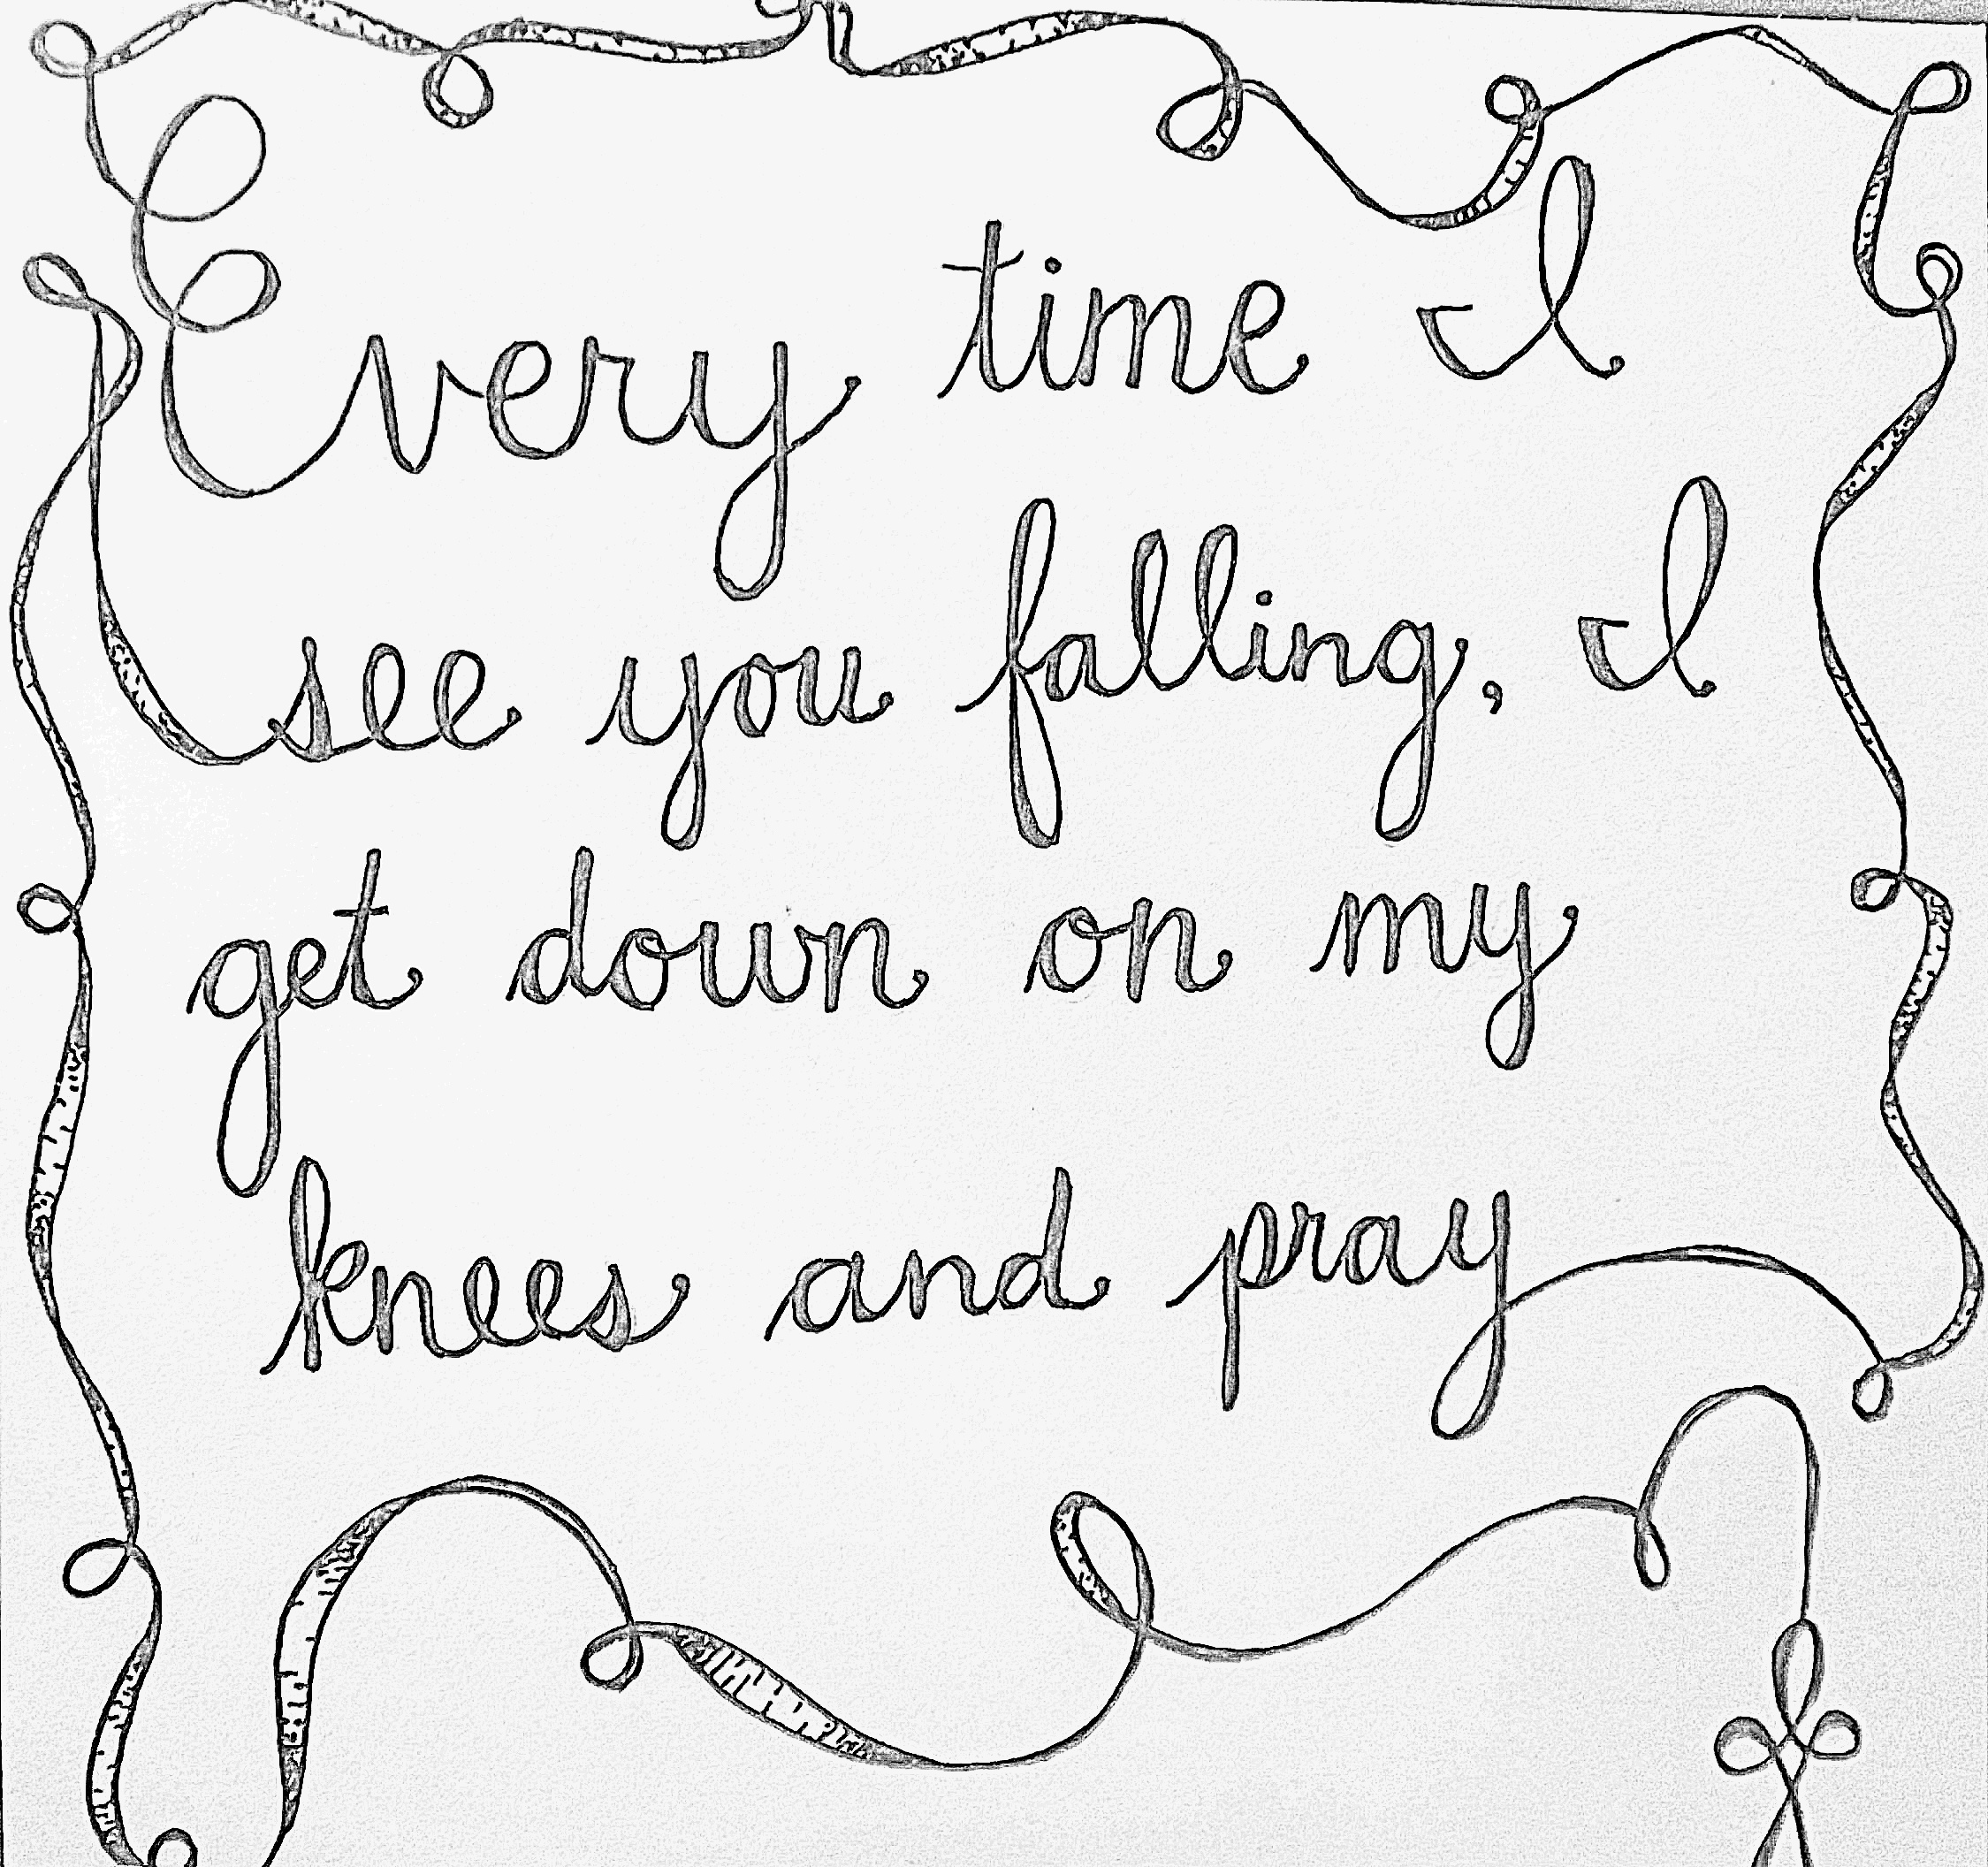 Every time I
see you falling, I
get down on my
knees and pray